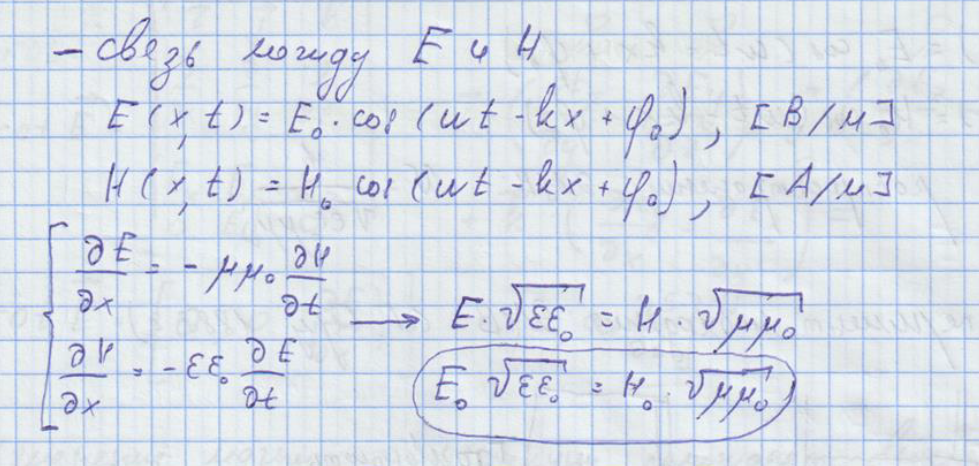 – связь между E и H
E(x,t) = E₀·cos(ωt - kx + φ₀), [В/м]
H(x,t) = H₀ cos(ωt - kx + φ₀), [А/м]
∂E/∂x = - μμ₀ ∂H/∂t
∂H/∂x = -εε₀ ∂E/∂t
→ E √εε₀ = H · √μμ₀
E₀ √εε₀ = H₀ · √μμ₀